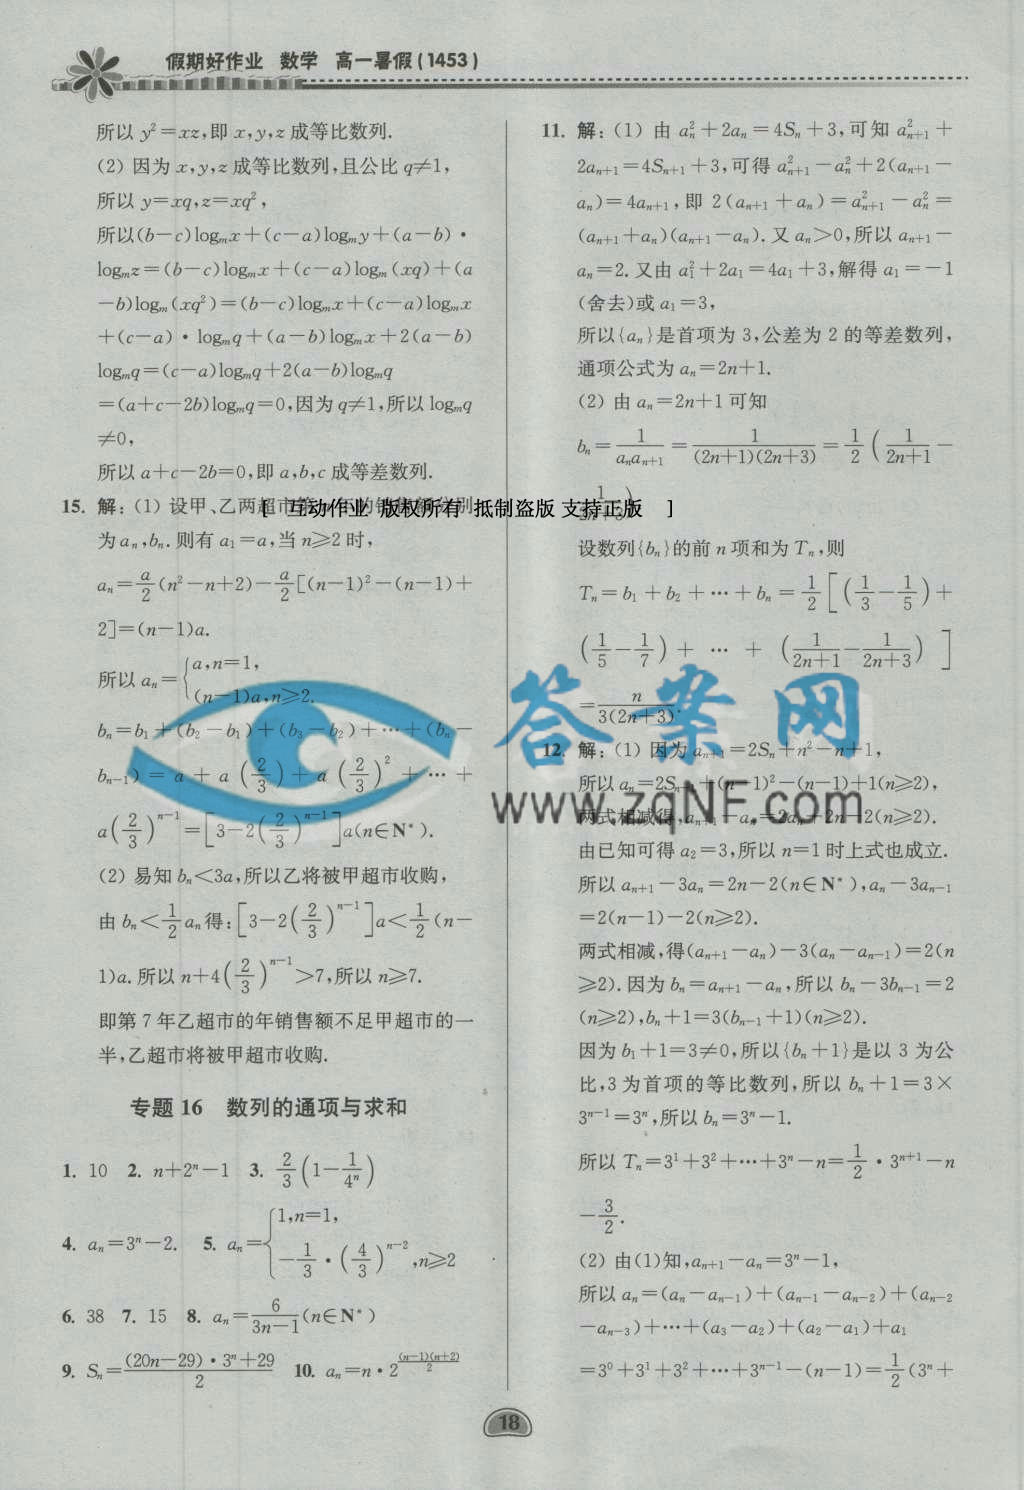 假期好作业 数学 高一暑假(1453)
所以 y²=xz,即 x,y,z 成等比数列.
(2) 因为 x,y,z 成等比数列,且公比 q≠1,
所以 y=xq,z=xq²,
所以(b-c)logₘx+(c-a)logₘy+(a-b)·
logₘz=(b-c)logₘx+(c-a)logₘ(xq)+(a
-b)logₘ(xq²)=(b-c)logₘx+(c-a)logₘx
+(c-a)·logₘq+(a-b)logₘx+2(a-b)
logₘq=(c-a)logₘq+2(a-b)logₘq
=(a+c-2b)logₘq=0,因为 q≠1,所以 logₘq
≠0,
所以 a+c-2b=0,即 a,b,c 成等差数列.
15. 解:(1) 设甲、乙两超市第 n 年的销售额分别
为 aₙ,bₙ.则有 a₁=a,当 n≥2 时,
aₙ=a/2(n²-n+2)-a/2[(n-1)²-(n-1)+
2]=(n-1)a.
所以 aₙ={a,n=1,
(n-1)a,n≥2.
bₙ=b₁+(b₂-b₁)+(b₃-b₂)+⋯+(bₙ-
bₙ₋₁)=a+a(2/3)+a(2/3)²+⋯+
a(2/3)ⁿ⁻¹=[3-2(2/3)ⁿ⁻¹]a(n∈N*).
(2) 易知 bₙ<3a,所以乙将被甲超市收购,
由 bₙ<1/2aₙ得:[3-2(2/3)ⁿ⁻¹]a<1/2(n-
1)a.所以 n+4(2/3)ⁿ⁻¹>7,所以 n≥7.
即第 7 年乙超市的年销售额不足甲超市的一
半,乙超市将被甲超市收购.
专题 16 数列的通项与求和
1. 10 2. n+2ⁿ-1 3. 2/3(1-1/4ⁿ)
4. aₙ=3ⁿ-2. 5. aₙ={1,n=1,
-1/3·(4/3)ⁿ⁻²,n≥2
6. 38 7. 15 8. aₙ=6/(3n-1)(n∈N*)
9. Sₙ=((20n-29)·3ⁿ+29)/2 10. aₙ=n·2^((n-1)(n+2)/2)
11. 解:(1) 由 aₙ²+2aₙ=4Sₙ+3,可知 aₙ₊₁²+
2aₙ₊₁=4Sₙ₊₁+3,可得 aₙ₊₁²-aₙ²+2(aₙ₊₁-
aₙ)=4aₙ₊₁,即 2(aₙ₊₁+aₙ)=aₙ₊₁²-aₙ²=
(aₙ₊₁+aₙ)(aₙ₊₁-aₙ).又 aₙ>0,所以 aₙ₊₁-
aₙ=2.又由 a₁²+2a₁=4a₁+3,解得 a₁=-1
(舍去)或 a₁=3,
所以{aₙ}是首项为 3,公差为 2 的等差数列,
通项公式为 aₙ=2n+1.
(2) 由 aₙ=2n+1 可知
bₙ=1/(aₙaₙ₊₁)=1/((2n+1)(2n+3))=1/2(1/(2n+1)-
1/(2n+3))
[ 互动作业 版权所有 抵制盗版 支持正版 ]
设数列{bₙ}的前 n 项和为 Tₙ,则
Tₙ=b₁+b₂+⋯+bₙ=1/2[(1/3-1/5)+
(1/5-1/7)+⋯+(1/(2n+1)-1/(2n+3))]
=n/(3(2n+3)).
12. 解:(1) 因为 aₙ₊₁=2Sₙ+n²-n+1,
所以 aₙ=2Sₙ₋₁+(n-1)²-(n-1)+1(n≥2),
两式相减得,aₙ₊₁-aₙ=2aₙ+2n-2(n≥2).
由已知可得 a₂=3,所以 n=1 时上式也成立.
所以 aₙ₊₁-3aₙ=2n-2(n∈N*),aₙ-3aₙ₋₁
=2(n-1)-2(n≥2).
两式相减,得(aₙ₊₁-aₙ)-3(aₙ-aₙ₋₁)=2(n
≥2).因为 bₙ=aₙ₊₁-aₙ,所以 bₙ-3bₙ₋₁=2
(n≥2),bₙ+1=3(bₙ₋₁+1)(n≥2).
因为 b₁+1=3≠0,所以{bₙ+1}是以 3 为公
比,3 为首项的等比数列,所以 bₙ+1=3×
3ⁿ⁻¹=3ⁿ,所以 bₙ=3ⁿ-1.
所以 Tₙ=3¹+3²+⋯+3ⁿ-n=1/2·3ⁿ⁺¹-n
-3/2.
(2) 由(1)知,aₙ₊₁-aₙ=3ⁿ-1,
所以 aₙ=(aₙ-aₙ₋₁)+(aₙ₋₁-aₙ₋₂)+(aₙ₋₂
-aₙ₋₃)+⋯+(a₃-a₂)+(a₂-a₁)+a₁
=3⁰+3¹+3²+⋯+3ⁿ⁻¹-(n-1)=1/2(3ⁿ+
答案网
www.zqNF.com
18